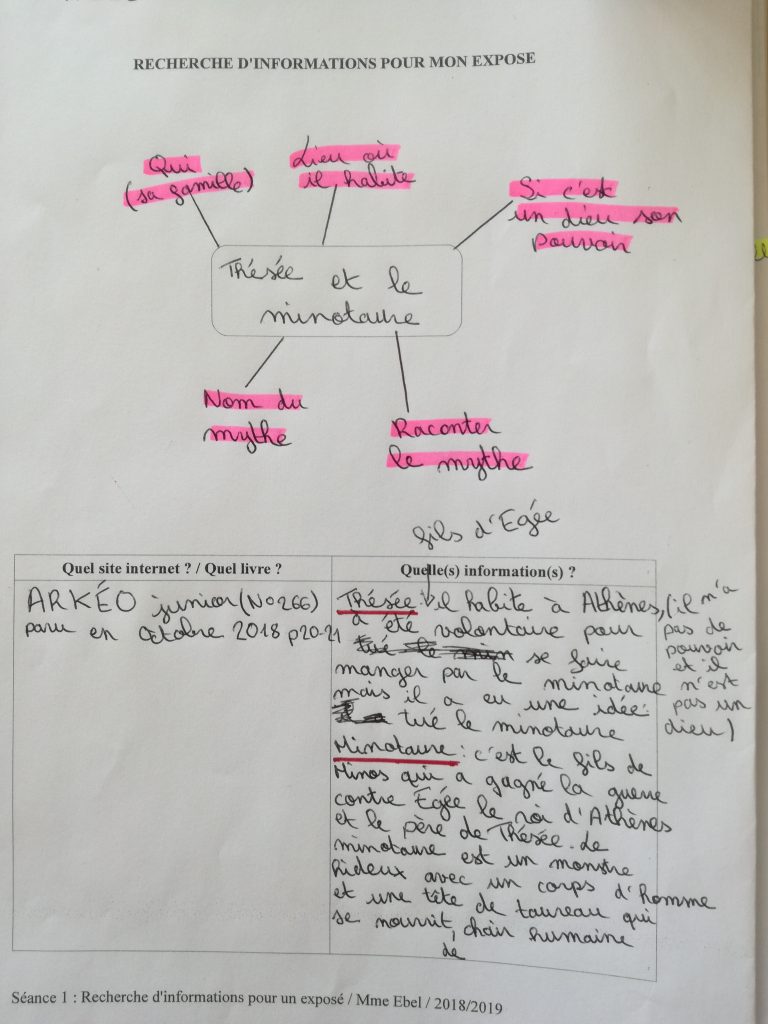 RECHERCHE D'INFORMATIONS POUR MON EXPOSE
Qui
(sa famille)
Lieu où
il habite
Si c'est
un dieu son
pouvoir
Thésée et le
minotaure
Nom du
mythe
Raconter
le mythe
fils d'Egée
Quel site internet ? / Quel livre ?
Quelle(s) information(s) ?
ARKÉO junior (No 266)
paru en Octobre 2018 p20-21
Thésée : il habite à Athènes,
a été volontaire pour
tué le se faire
manger par le minotaure
mais il a eu une idée :
tué le minotaure
(il n'a
pas de
pouvoir
et il
n'est
pas un
dieu)
Minotaure : c'est le fils de
Minos qui a gagné la guerre
contre Egée le roi d'Athènes
et le père de Thésée. Le
minotaure est un monstre
hideux avec un corps d'homme
et une tête de taureau qui
se nourrit chair humaine
de
Séance 1 : Recherche d'informations pour un exposé / Mme Ebel / 2018/2019